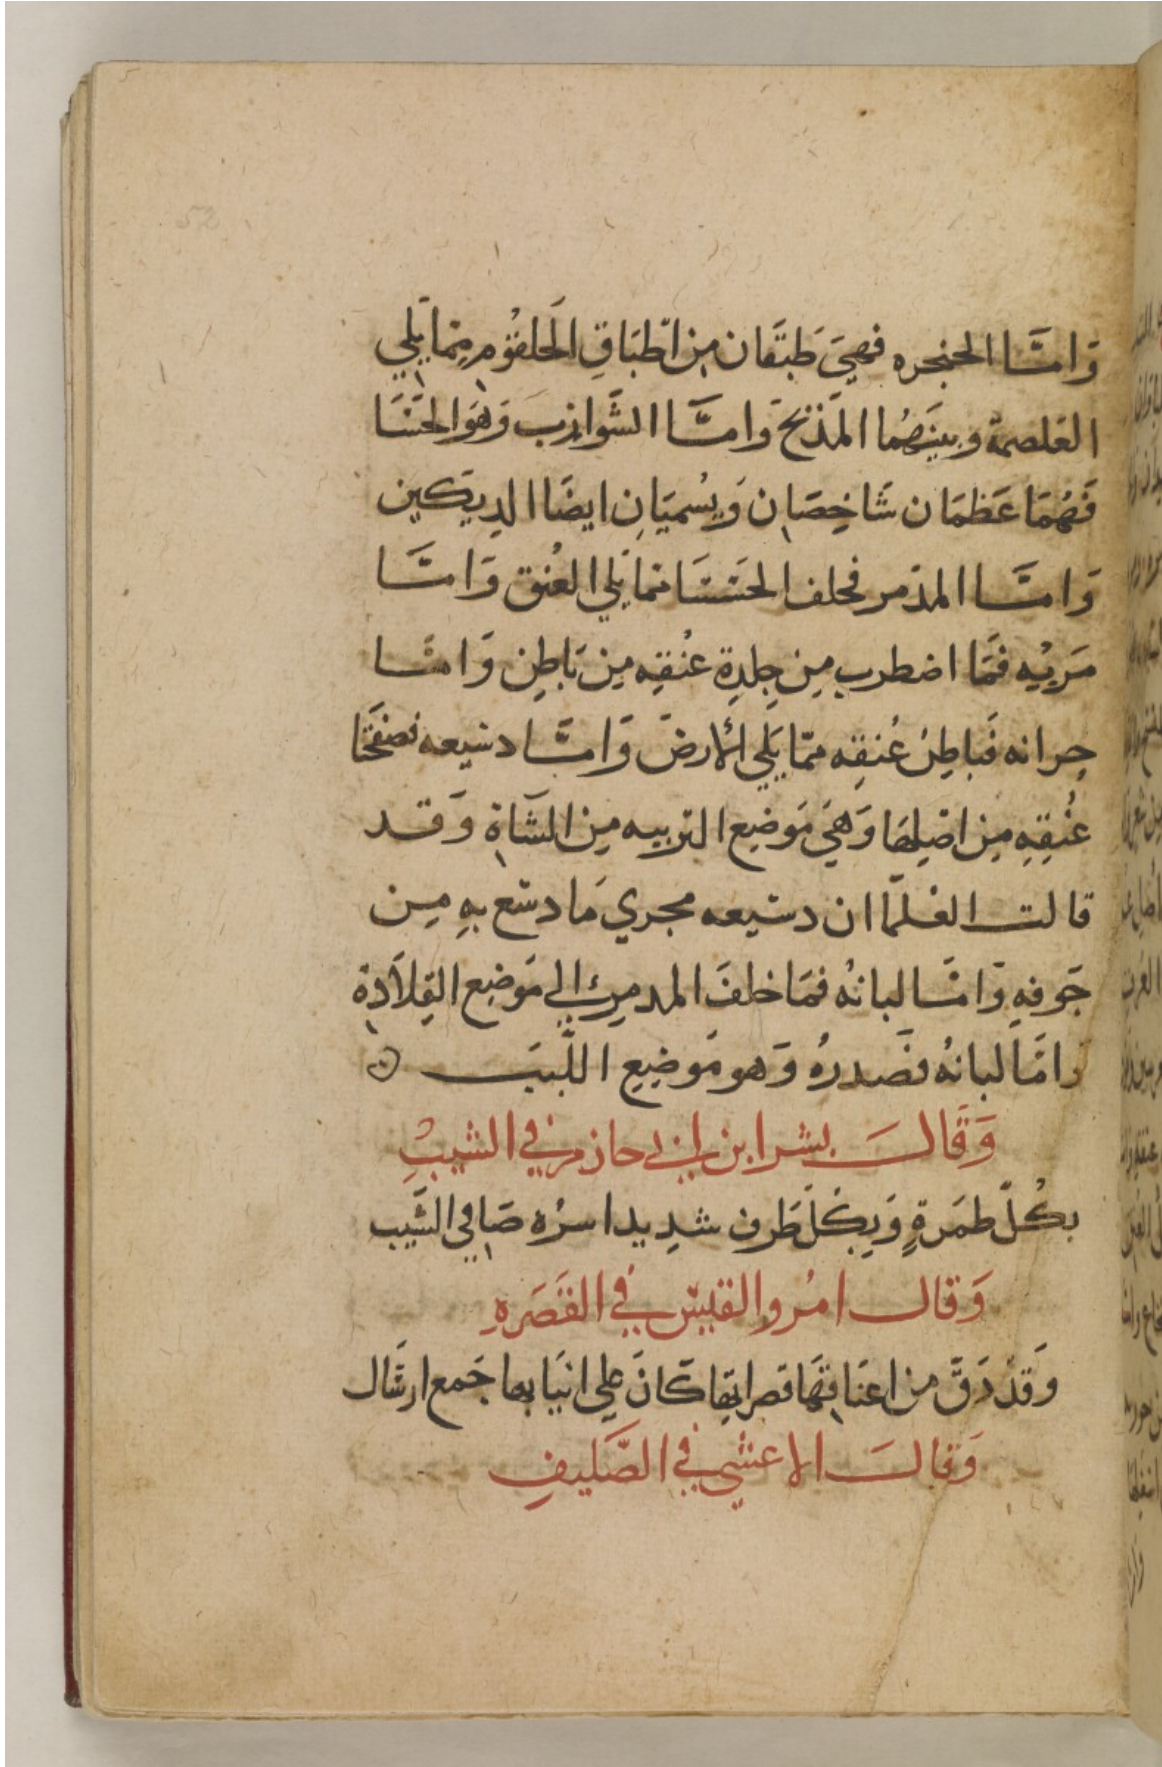 وَامَّا الحنجره فهيَ طَبقَان مِن اطّبَاقِ الحَلقُوم مِمّا يَلي
الغلصمة وبينَهُما المَذبَح وَامَّا الشَّوازب وَهوَ الحَشَا
فَهُمَا عَظمَان شَاخِصَان وَيُسميَانِ ايضَا الدِيكين
وَامَّا المذمر فخلف الحَشَشَا مما يَلي العُنق وَامَّا
مَريْه فمَا اضطرب مِن جِلدِة عُنقِه مِن بَاطِن وَامَّا
جِرانه فَباطِنُ عُنقِه ممّا يَلي الأرضَ وَامَّا دسَيعه فصفحَتا
عُنُقِهِ مِن اصْلِهَا وَهيَ مَوضِع التربيه مِن الشَاةِ وَقد
قالت العُلمَّا ان دسَيعه مجري مَا دسَع بهِ مِن
جَوفهِ وَامَّا لبانهُ فمَا خلفَ المدمر إلي مَوضِع القِلاَدة
وامَّا لبانهُ فَصدرهُ وَهو مَوضِعِ اللَّببَ
وَقَالَ بشر ابن ابي حازم في الشَيبِ
بكُلّ طمَرةٍ وَبِكلّ طَرف شدِيد اسرُه صَافي الشَّيب
وَقال امُرو القيسّ في القَصَرهِ
وَقَدّ دَقَّ من اعنَاقِهَا قصراتِها كَانَ علي انيَابها جَمع ارشَال
وَقالَ الاعشي في الصَّليفِ